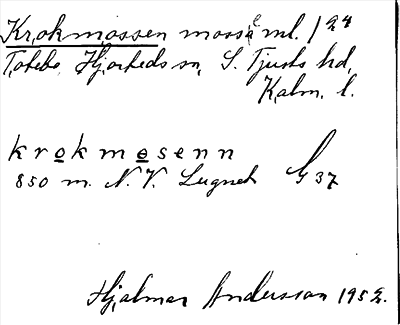 Krokmossen mosse ml. 124
Totebo, Hjorteds sn, S. Tjusts hd,
Kalm. l.
krokmosenn
850 m. N.V. Lugnet G 37
Hjalmar Andersson 1952.